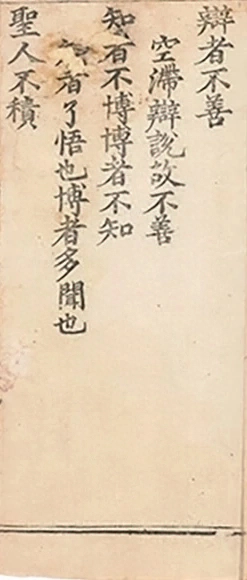 辯者不善
空滯辯說故不善
知者不博博者不知
者了悟也博者多聞也
聖人不積